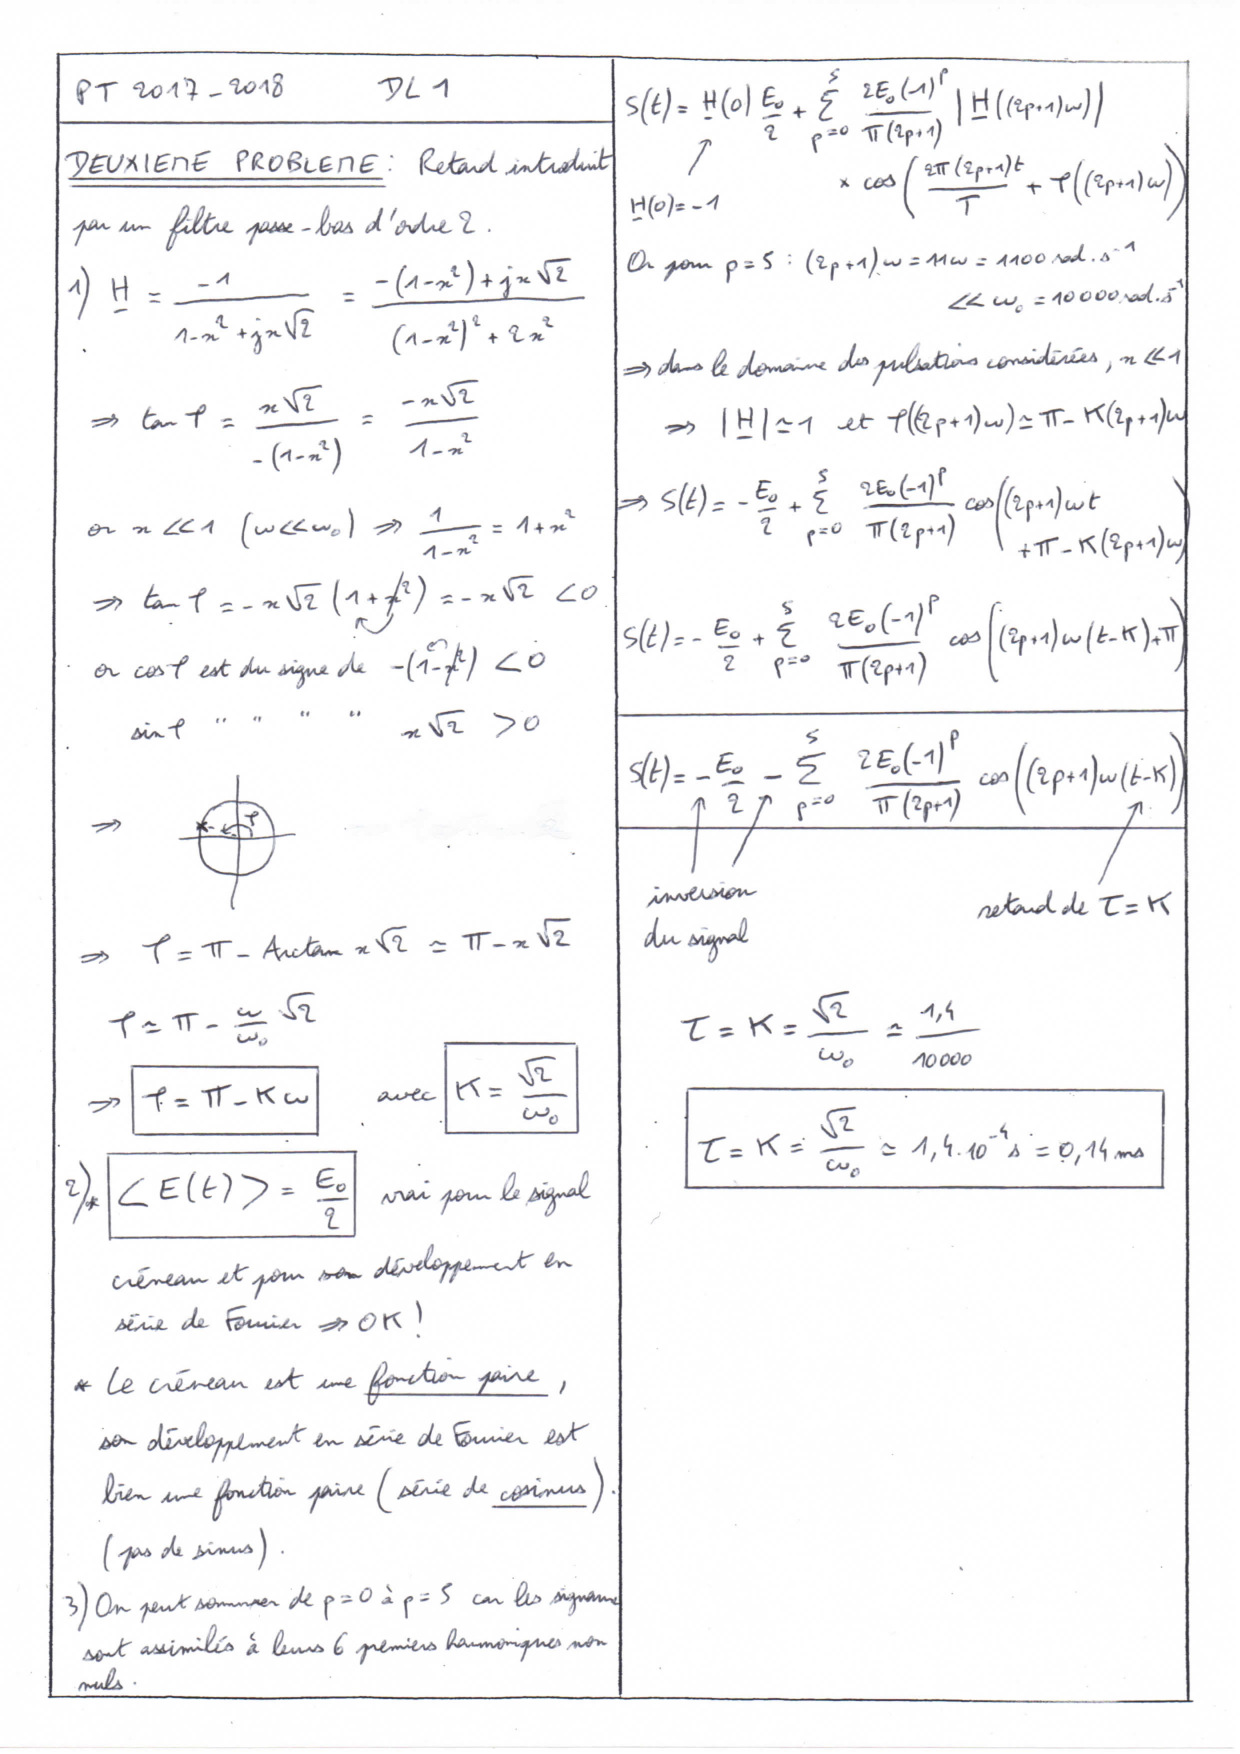 PT 2017-2018 DL 1
DEUXIEME PROBLEME : Retard introduit
par un filtre passe-bas d'ordre 2.
1) H = -1 / (1-x² + jx√2) = (-(1-x²) + jx√2) / ((1-x²)² + 2x²)
⇒ tan φ = x√2 / -(1-x²) = -x√2 / (1-x²)
or x << 1 (ω << ω₀) ⇒ 1/(1-x²) = 1+x²
⇒ tan φ = -x√2 (1+x²) = -x√2 < 0
or cos φ est du signe de -(1-x²) < 0
sin φ " " " " x√2 > 0
⇒ φ
⇒ φ = π - Arctan x√2 ≃ π - x√2
φ ≃ π - ω/ω₀ √2
⇒ φ = π - Kω avec K = √2/ω₀
2) * <E(t)> = E₀/2 vrai pour le signal
créneau et pour son développement en
série de Fourier ⇒ OK !
* Le créneau est une fonction paire,
son développement en série de Fourier est
bien une fonction paire (série de cosinus).
(pas de sinus).
3) On peut sommer de p=0 à p=5 car les signaux
sont assimilés à leurs 6 premiers harmoniques non
nuls.
S(t) = H(0) E₀/2 + Σ_{p=0}^{5} 2E₀(-1)^p / (π(2p+1)) |H((2p+1)ω)|
× cos(2π(2p+1)t / T + φ((2p+1)ω))
H(0) = -1
Or pour p=5 : (2p+1)ω = 11ω = 1100 rad.s⁻¹
<< ω₀ = 10000 rad.s⁻¹
⇒ dans le domaine des pulsations considérées, x << 1
⇒ |H| ≃ 1 et φ((2p+1)ω) ≃ π - K(2p+1)ω
⇒ S(t) = -E₀/2 + Σ_{p=0}^{5} 2E₀(-1)^p / (π(2p+1)) cos((2p+1)ωt
+ π - K(2p+1)ω)
S(t) = -E₀/2 + Σ_{p=0}^{5} 2E₀(-1)^p / (π(2p+1)) cos((2p+1)ω(t-K)+π)
S(t) = -E₀/2 - Σ_{p=0}^{5} 2E₀(-1)^p / (π(2p+1)) cos((2p+1)ω(t-K))
inversion
du signal
retard de τ = K
τ = K = √2/ω₀ ≃ 1,4/10000
τ = K = √2/ω₀ ≃ 1,4.10⁻⁴ s = 0,14 ms